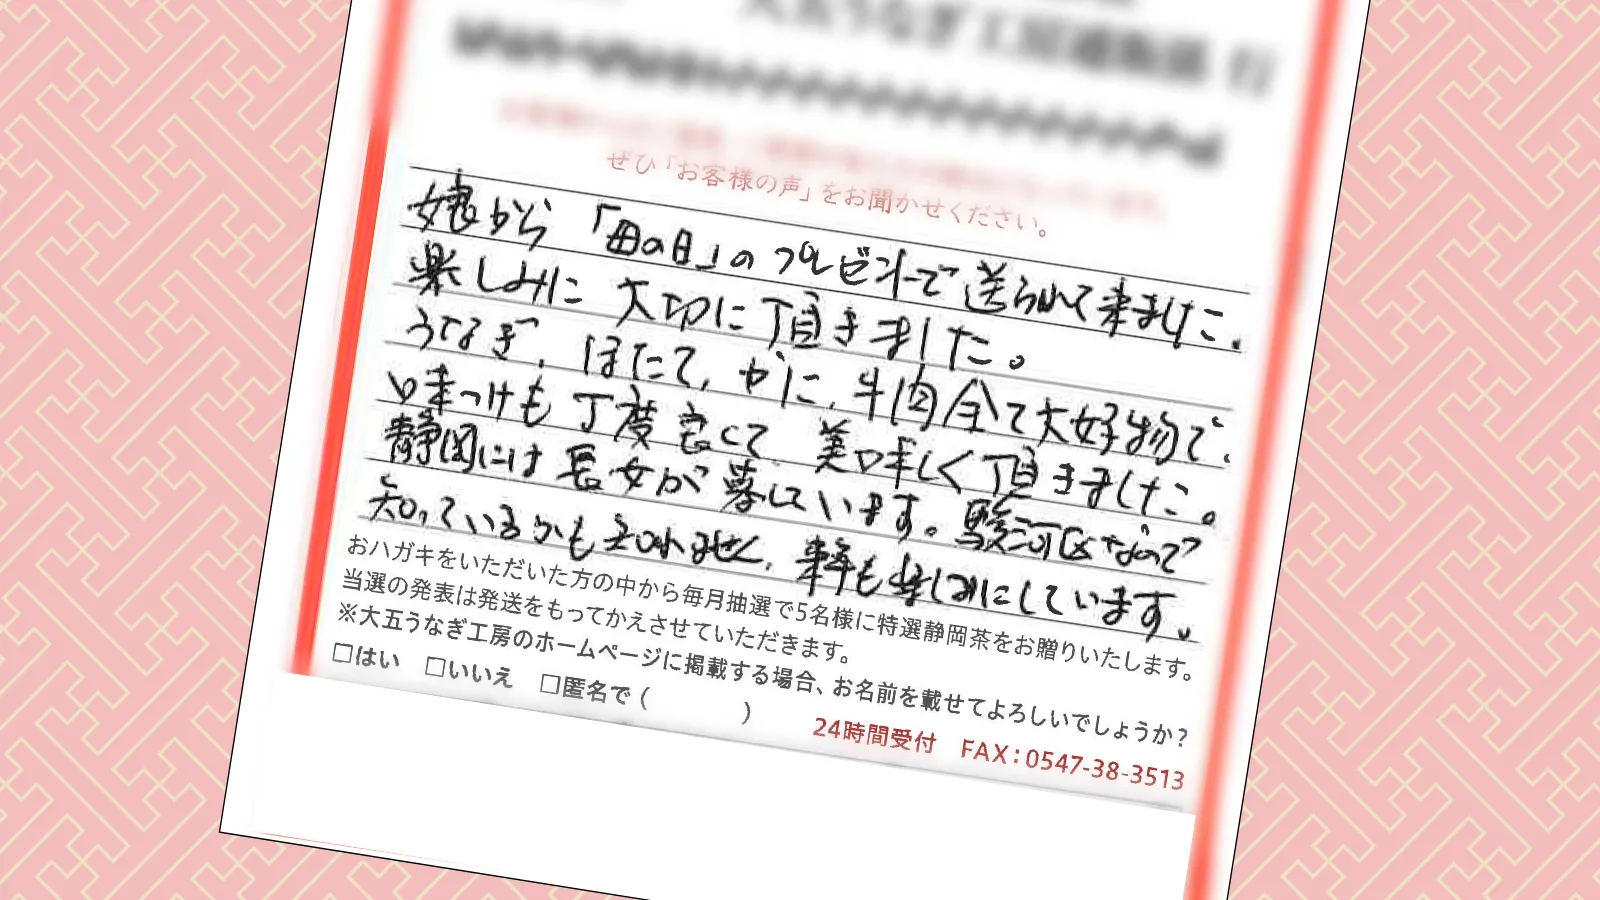 大五うなぎ工房通販係 行
ぜひ「お客様の声」をお聞かせください。
娘から「母の日」のプレゼントで送られて来ました。
楽しみに大切に丁頂きました。
うなぎ、ほたて、かに、牛肉全て大好物で、
味つけも丁度良くて美味しく頂きました。
静岡には長女が暮しています。駿河区なので
知っているかも知れません、来年も楽しみにしています。
おハガキをいただいた方の中から毎月抽選で5名様に特選静岡茶をお贈りいたします。
当選の発表は発送をもってかえさせていただきます。
※大五うなぎ工房のホームページに掲載する場合、お名前を載せてよろしいでしょうか?
□はい □いいえ □匿名で( )
24時間受付 FAX:0547-38-3513